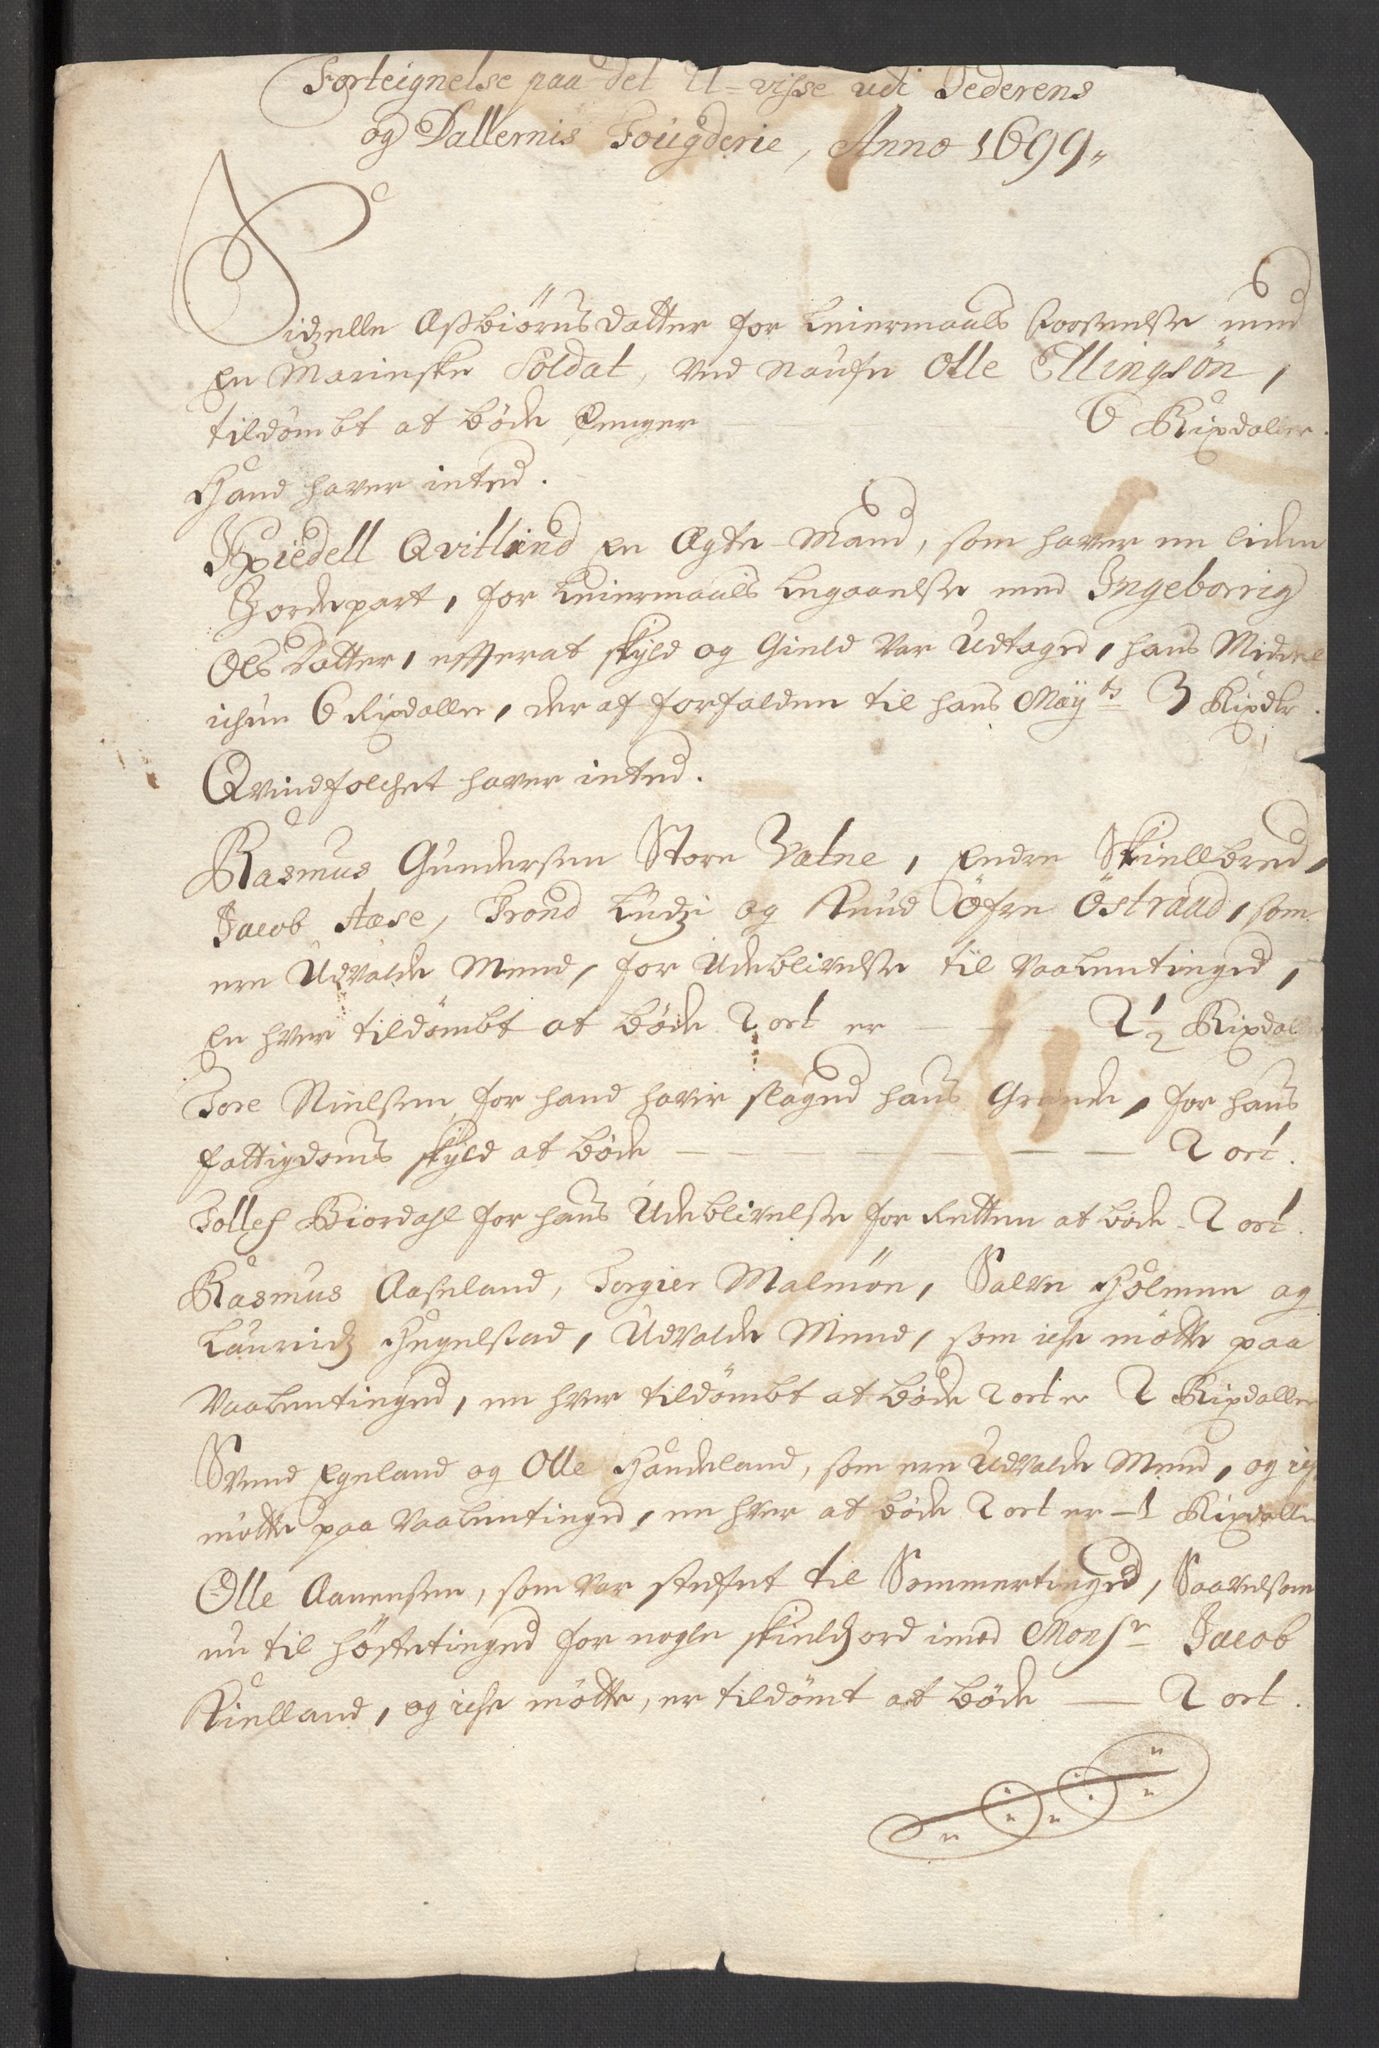 Forteignelse paa det U-visse udi Jederens
og Dallernis Fougderie, Anno 1699„
Sidzelle Asbiörnsdatter for Leiermaals Forseelse med
en Marinske Soldat, ved Naufn Olle Ellingsön,
tildömbt at böde Penger 6 Rixdaller.
Hand haver inted.
Kiedell Qvitland en Ægte-Mand, som haver en liden
Jordepart, for Leiermaals begaaelse med Ingeborrig
Olsdatter, effterat skyld og Gield var udtaged, hans Middel
ichun 6 Rixdaller, der af forfalden til hans Mayts 3 Rixdlr.
Qvindfolchet haver inted.
Rasmus Gundersen Store Vatne, Endre Skiellbred,
Jacob Aase, Trond Ludzi og Knud Öfre Östraad, som
ere Udvalde Mend, for Udeblivelse til Vaabentinged,
en hver tildömbt at böde 2 ort er — — 2 1/2 Rixdaller
Tore Nielsen, for hand haver slaged hans Grande, for hans
fattigdoms skyld at böde — — — 2 ort.
Tollef Biordahl for hans Udeblivelse for Retten at böde - 2 ort.
Rasmus Aaseland, Torgier Malmön, Salve Holmen og
Lauridz Hegelstad, Udvalde Mend, som iche mötte paa
Vaabentinged, en hver tildömbt at böde 2 ort er 2 Rixdaller
Svend Egeland og Olle Handeland, som ere Udvalde Mend, og ich
mötte paa Vaabentinged, en hver at böde 2 ort er — 1 Rixdaller
Olle Aanensen, som var stefnt til Sommertinged, Saavelsom
nu til höstetinged for nogle skieldzord imod Monsr Jacob
Kielland, og iche mötte, er tildömt at böde — 2 ort.